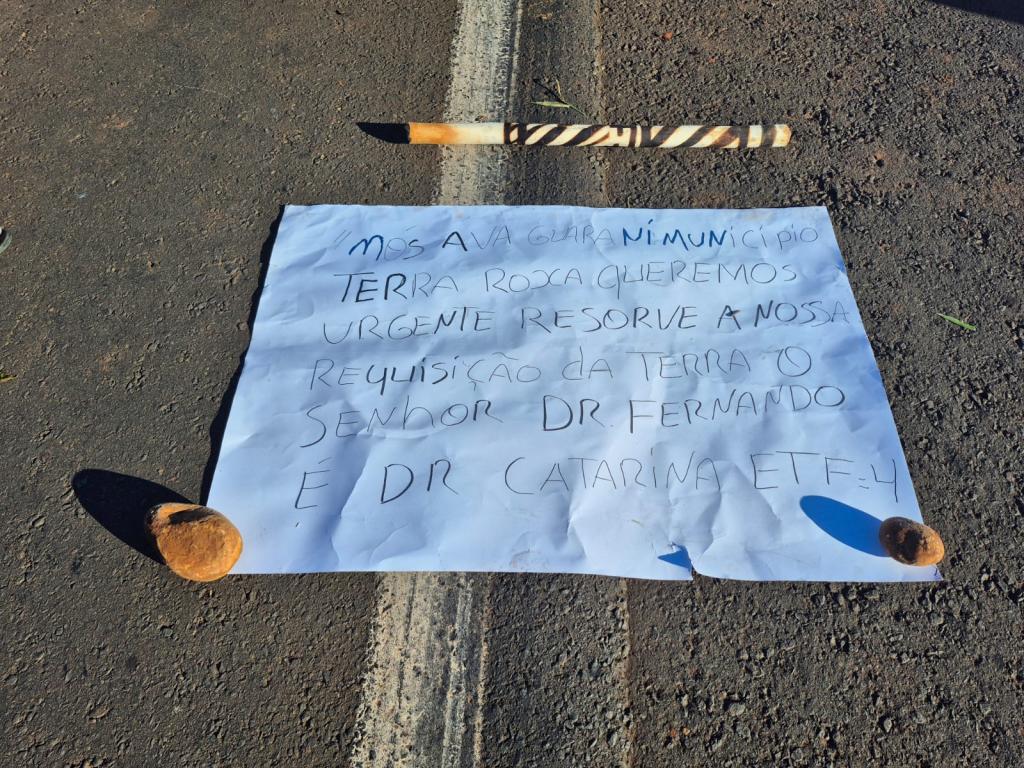 "NÓS AVA GUARANI MUNICÍPIO
TERRA ROXA QUEREMOS
URGENTE RESORVE A NOSSA
REQUISIÇÃO DA TERRA O
SENHOR DR. FERNANDO
É DR CATARINA ETF=4